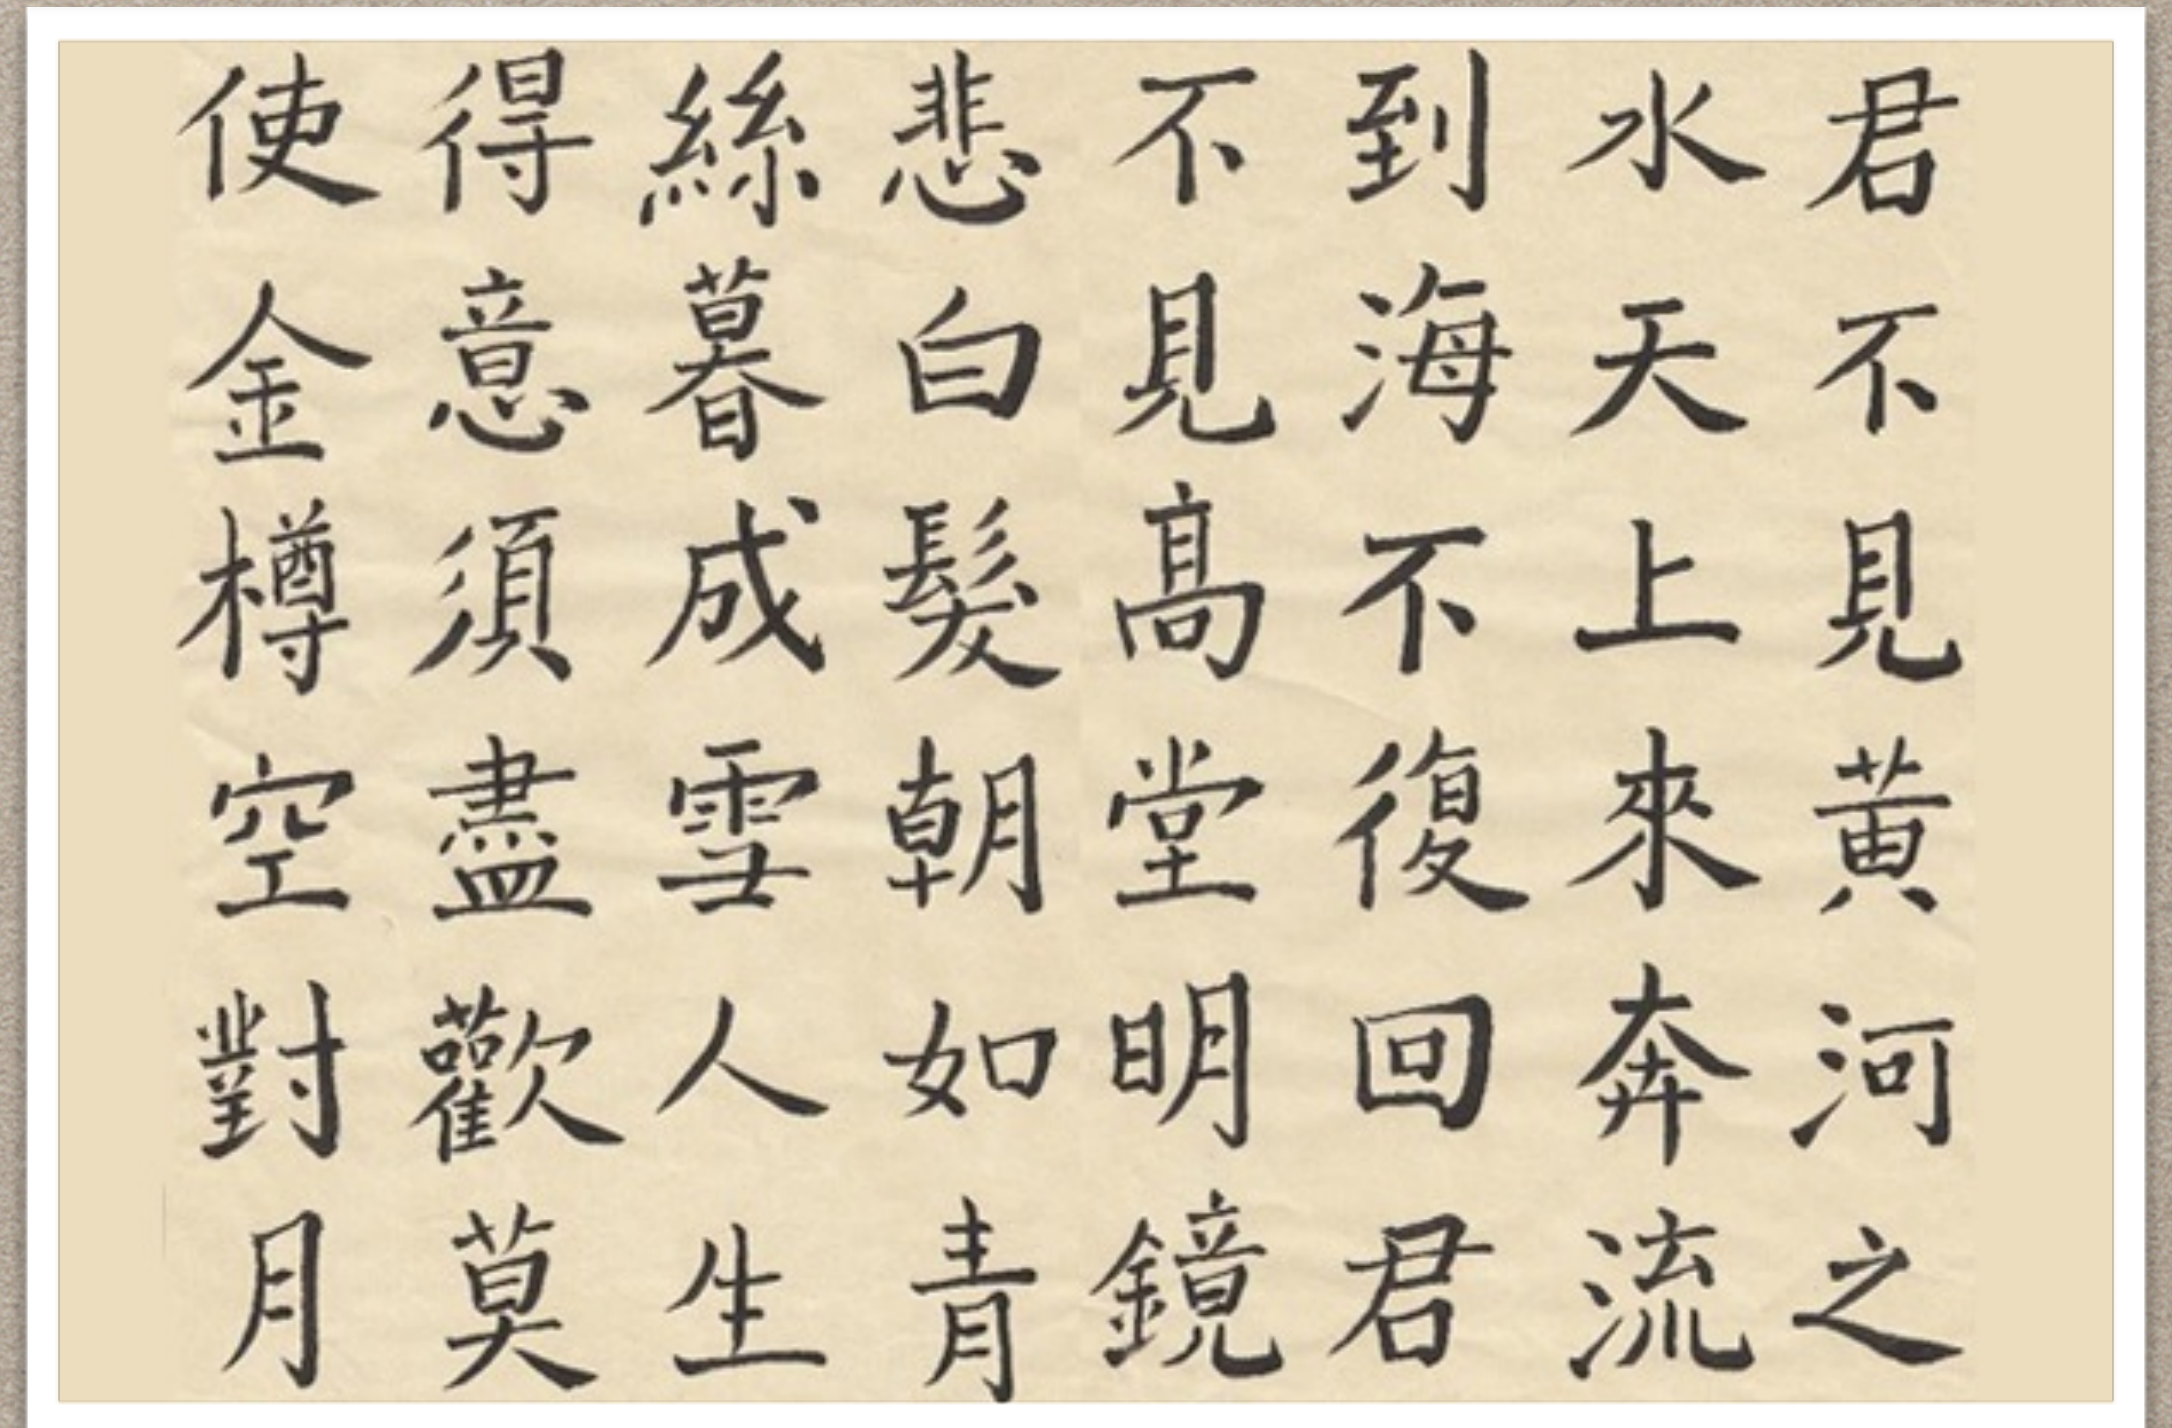 君不見黃河之
水天上來奔流
到海不復回君
不見高堂明鏡
悲白髮朝如青
絲暮成雪人生
得意須盡歡莫
使金樽空對月